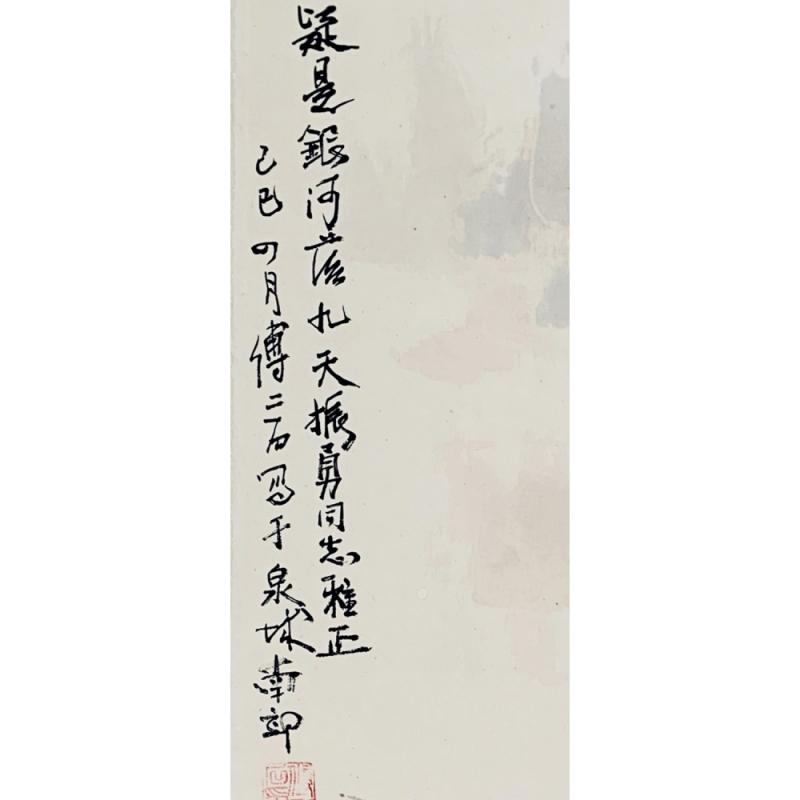 疑是銀河落九天振勇同志雅正
己巳四月傅二石写于泉城南郊